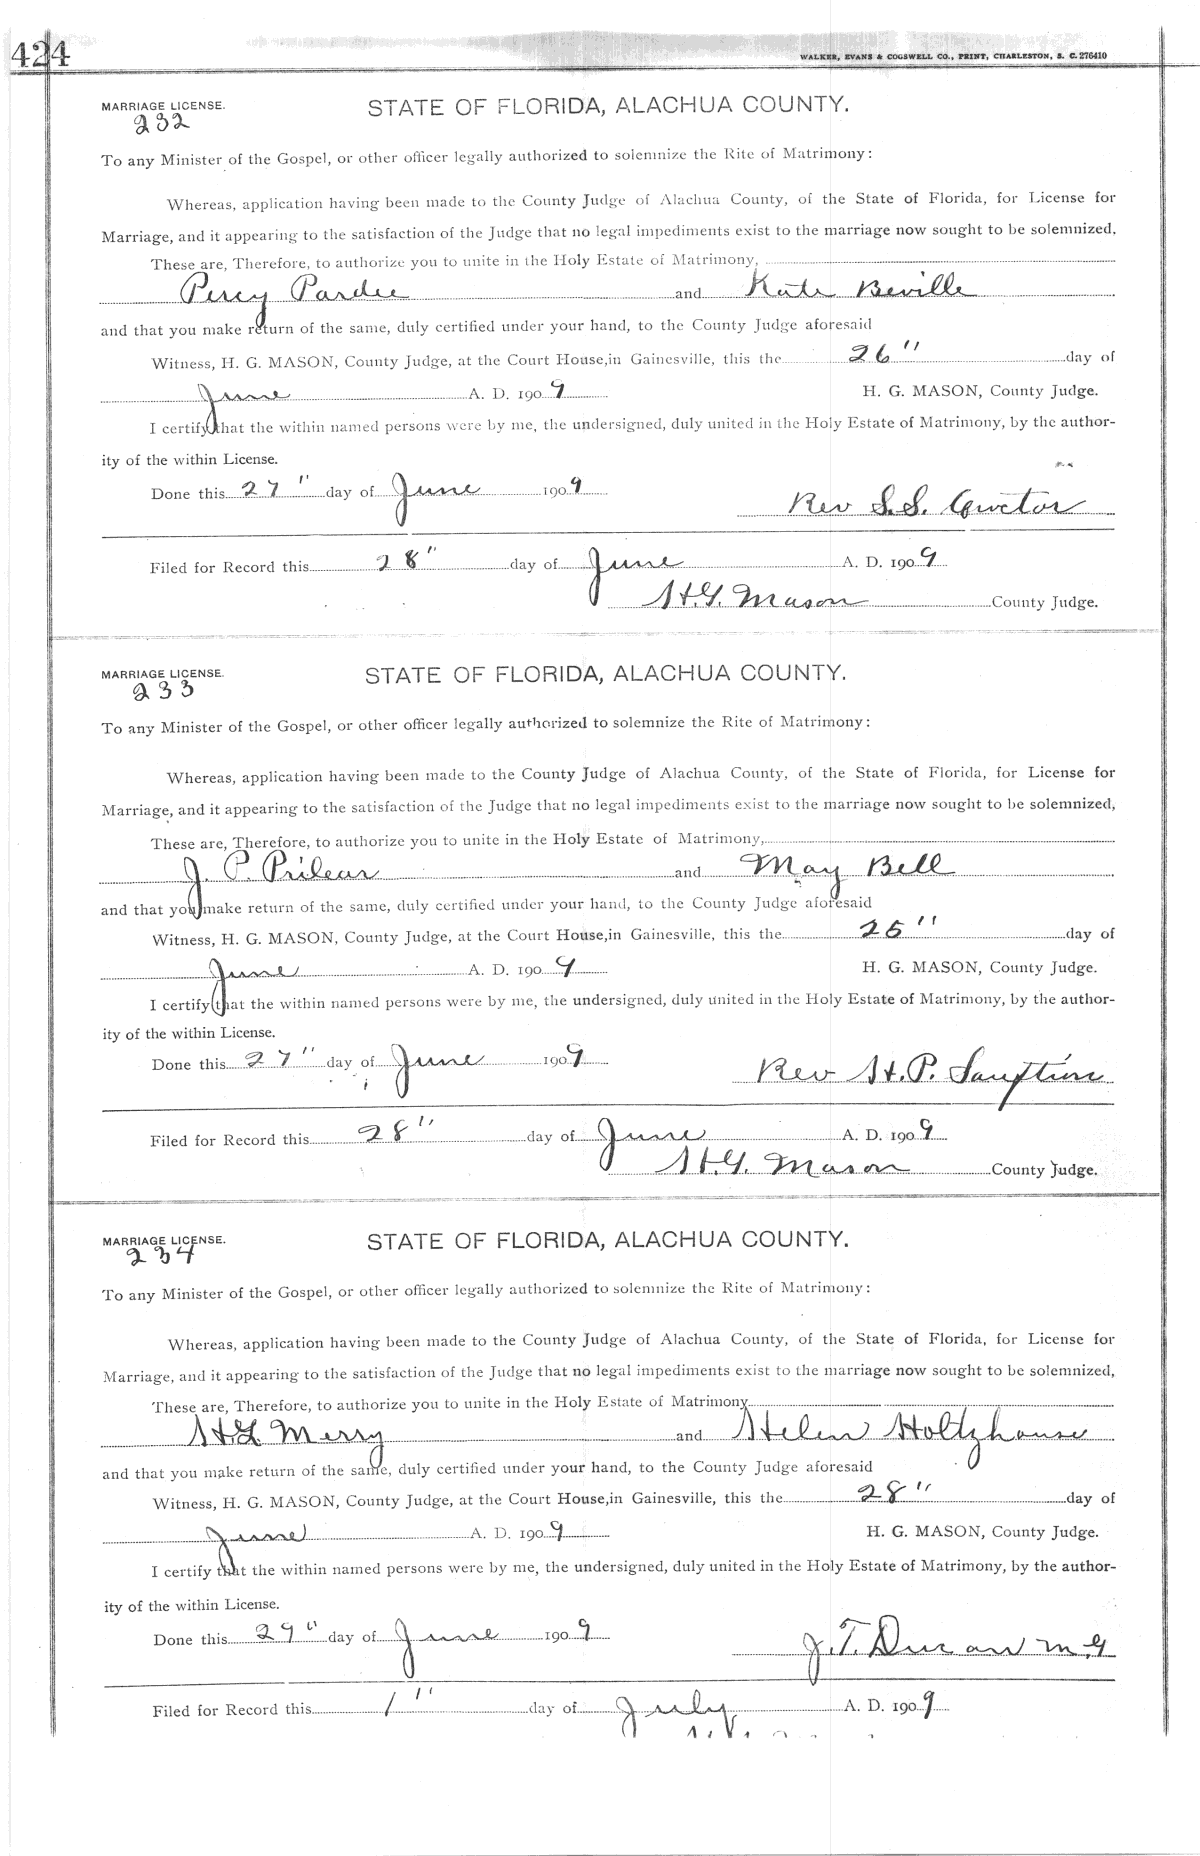 424
WALKER, EVANS & COGSWELL CO., PRINT, CHARLESTON, S. C. 276410
MARRIAGE LICENSE.
232
STATE OF FLORIDA, ALACHUA COUNTY.
To any Minister of the Gospel, or other officer legally authorized to solemnize the Rite of Matrimony:
Whereas, application having been made to the County Judge of Alachua County, of the State of Florida, for License for
Marriage, and it appearing to the satisfaction of the Judge that no legal impediments exist to the marriage now sought to be solemnized.
These are, Therefore, to authorize you to unite in the Holy Estate of Matrimony,
Percy Pardee and Kate Beville
and that you make return of the same, duly certified under your hand, to the County Judge aforesaid
Witness, H. G. MASON, County Judge, at the Court House,in Gainesville, this the 26" day of
June A. D. 1909 H. G. MASON, County Judge.
I certify that the within named persons were by me, the undersigned, duly united in the Holy Estate of Matrimony, by the author-
ity of the within License.
Done this 27" day of June 1909
Rev S.S.
Filed for Record this 28" day of June A. D. 1909
H.G. Mason County Judge.
MARRIAGE LICENSE.
233
STATE OF FLORIDA, ALACHUA COUNTY.
To any Minister of the Gospel, or other officer legally authorized to solemnize the Rite of Matrimony:
Whereas, application having been made to the County Judge of Alachua County, of the State of Florida, for License for
Marriage, and it appearing to the satisfaction of the Judge that no legal impediments exist to the marriage now sought to be solemnized,
These are, Therefore, to authorize you to unite in the Holy Estate of Matrimony,
J. P. Prilear and May Bell
and that you make return of the same, duly certified under your hand, to the County Judge aforesaid
Witness, H. G. MASON, County Judge, at the Court House,in Gainesville, this the 25" day of
June A. D. 1909 H. G. MASON, County Judge.
I certify that the within named persons were by me, the undersigned, duly united in the Holy Estate of Matrimony, by the author-
ity of the within License.
Done this 27" day of June 1909
Rev H. P.
Filed for Record this 28" day of June A. D. 1909
H.G. Mason County Judge.
MARRIAGE LICENSE.
234
STATE OF FLORIDA, ALACHUA COUNTY.
To any Minister of the Gospel, or other officer legally authorized to solemnize the Rite of Matrimony:
Whereas, application having been made to the County Judge of Alachua County, of the State of Florida, for License for
Marriage, and it appearing to the satisfaction of the Judge that no legal impediments exist to the marriage now sought to be solemnized,
These are, Therefore, to authorize you to unite in the Holy Estate of Matrimony
H.L. Merry and Helen Holtzhouse
and that you make return of the same, duly certified under your hand, to the County Judge aforesaid
Witness, H. G. MASON, County Judge, at the Court House,in Gainesville, this the 28" day of
June A. D. 1909 H. G. MASON, County Judge.
I certify that the within named persons were by me, the undersigned, duly united in the Holy Estate of Matrimony, by the author-
ity of the within License.
Done this 29" day of June 1909
J. T. Duran M.G
Filed for Record this 1" day of July A. D. 1909